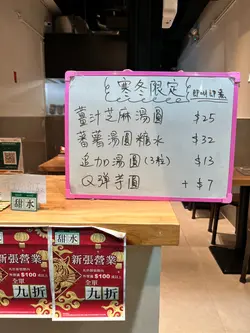 寒冬限定
薑汁芝麻湯圓 $25
蕃薯湯圓糖水 $32
追加湯圓(3粒) $13
Q弹芋圓 +$7
甜水
甜水
新張營業
$100
全單
九折
新張營業
$100
全單
九折